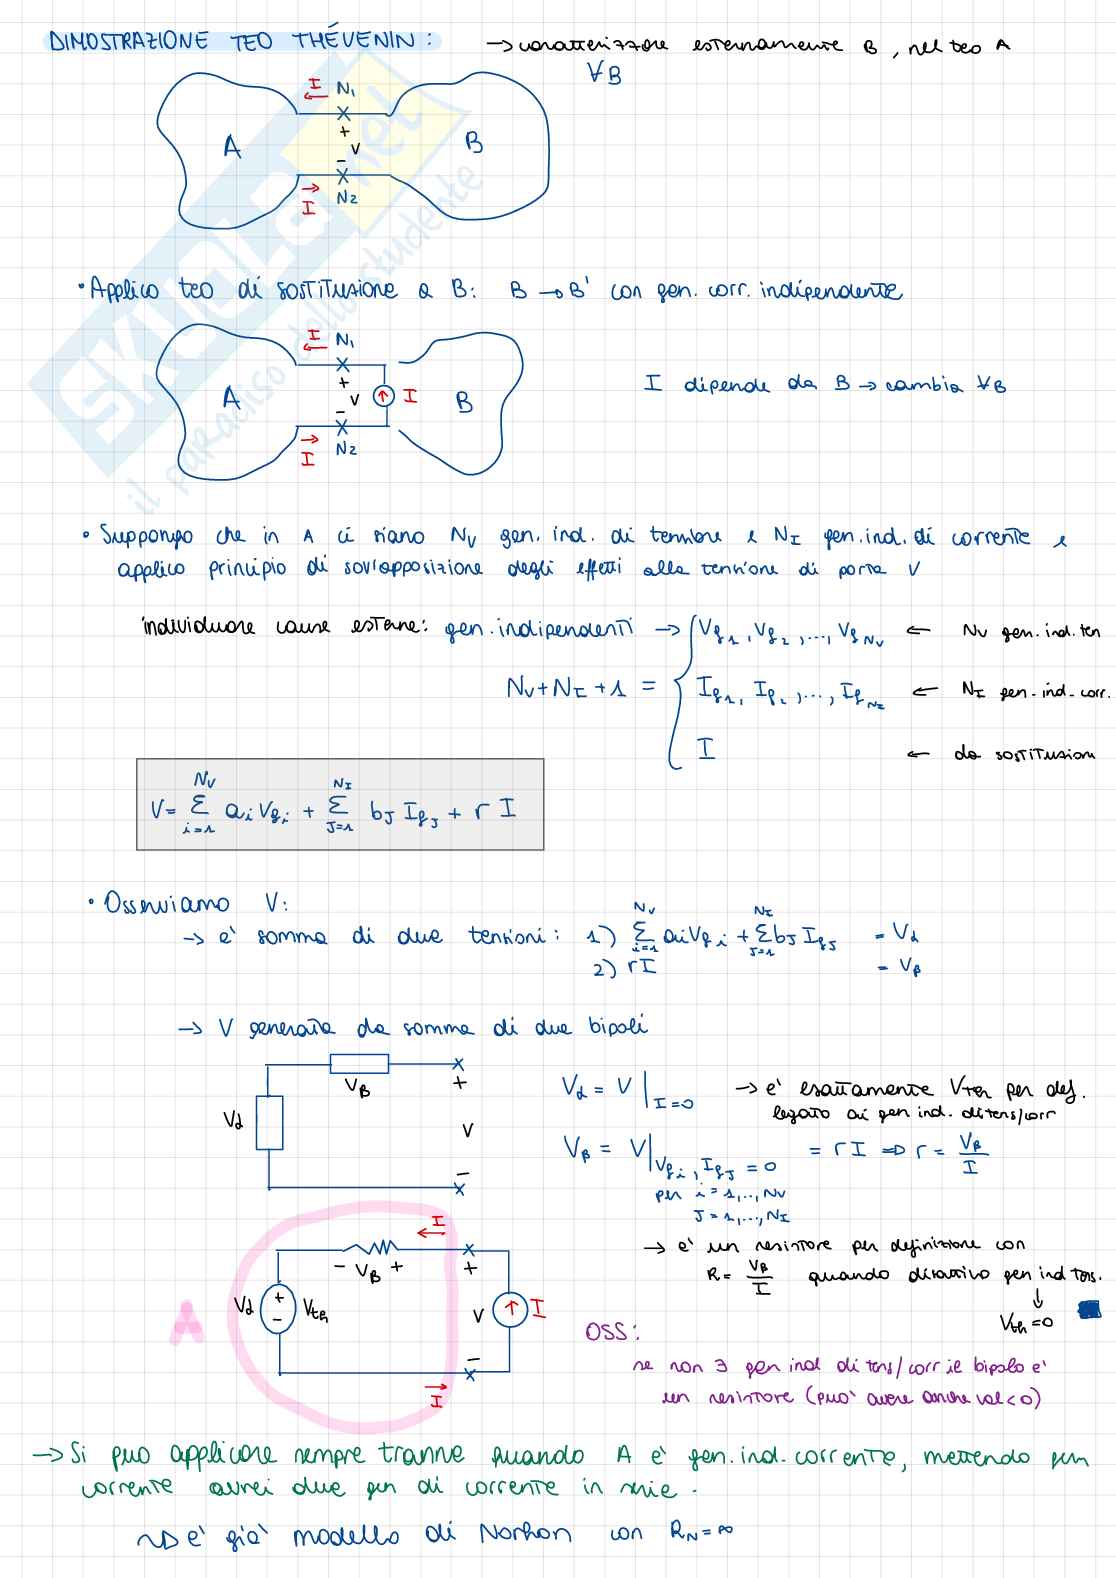 DIMOSTRAZIONE TEO THÉVENIN:
→ caratterizzare esternamente B, nel teo A
∀B
I N1
A + V - B
I N2
• Applico teo di sostituzione a B: B → B' con gen. corr. indipendente
I N1
A + V - I B
I N2
I dipende da B → cambia ∀B
• Suppongo che in A ci siano NV gen. ind. di tensione e NI gen. ind. di corrente e
applico principio di sovrapposizione degli effetti alla tensione di porta V
individuare cause esterne: gen. indipendenti → { Vg1, Vg2, ..., VgNV ← NV gen. ind. ten
NV + NI + 1 = Ig1, Ig2, ..., IgNI ← NI gen. ind. corr.
I ← da sostituzioni
V = Σ(i=1..NV) ai Vgi + Σ(J=1..NI) bJ IgJ + r I
• Osserviamo V:
→ è somma di due tensioni: 1) Σ(i=1..NV) ai Vgi + Σ(J=1..NI) bJ IgJ = Vα
2) rI = Vβ
→ V generata da somma di due bipoli
Vβ
+
Vα V
-
Vα = V |I=0 → è esattamente Vth per def.
legato ai gen ind. di tens/corr
Vβ = V |Vgi, IgJ = 0 = rI ⇒ r = Vβ/I
per i = 1,..,NV
J = 1,...,NI
I
- Vβ + +
A Vα + - Vth V I
-
I
→ è un resistore per definizione con
R = Vβ/I quando disattivo gen ind tens.
↓
Vth = 0
OSS:
se non ∃ gen ind di tens/corr il bipolo è
un resistore (può avere anche val < 0)
→ Si può applicare sempre tranne quando A è gen. ind. corrente, mettendo gen
corrente avrei due gen di corrente in serie.
⇝ è già modello di Northon con RN = ∞
SKUOLA.net
il paradiso dello studente